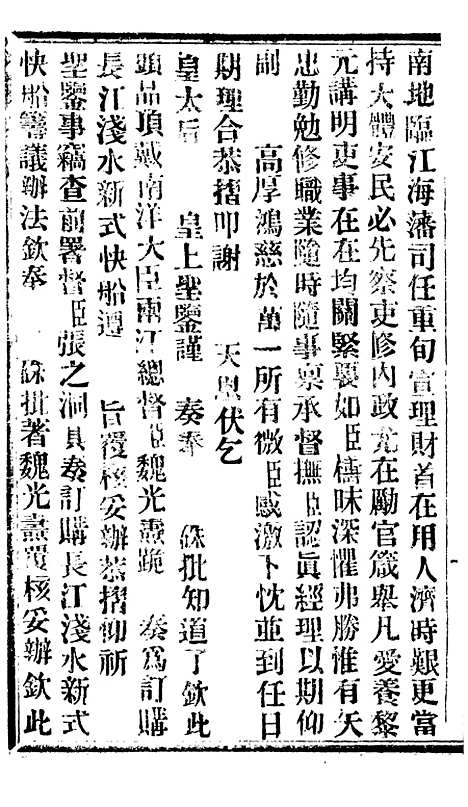 南地臨江海藩司任重旬宣理財首在用人濟時艱更當
持大體安民必先察吏修內政尤在勵官箴舉凡愛養黎
元講明吏事在在均關緊要如臣檮昧深懼弗勝惟有矢
忠勤勉修職業隨時隨事稟承督撫臣認眞經理以期仰
副　　高厚鴻慈於萬一所有微臣感激下忱並到任日
期理合恭摺叩謝　　天恩伏乞
皇太后　　皇上聖鑒謹　奏奉　　硃批知道了欽此
頭品頂戴南洋大臣兩江總督臣魏光燾跪　奏爲訂購
長江淺水新式快船遵　　旨覆核妥辦恭摺仰祈
聖鑒事竊查前署督臣張之洞具奏訂購長江淺水新式
快船籌議辦法欽奉　　硃批著魏光燾覆核妥辦欽此